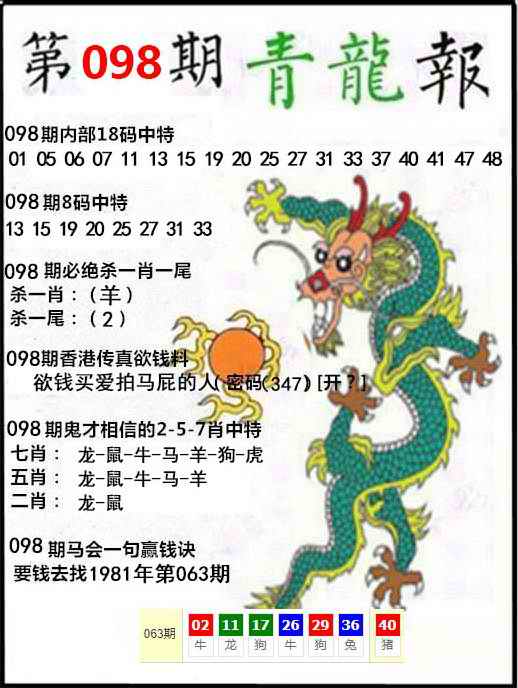 第098期青龍報
098期内部18码中特
01 05 06 07 11 13 15 19 20 25 27 31 33 37 40 41 47 48
098 期8码中特
13 15 19 20 25 27 31 33
098 期必绝杀一肖一尾
杀一肖：（羊）
杀一尾：（2）
098期香港传真欲钱料
欲钱买爱拍马屁的人( 密码(347) [开？]
098 期鬼才相信的2-5-7肖中特
七肖： 龙-鼠-牛-马-羊-狗-虎
五肖： 龙-鼠-牛-马-羊
二肖： 龙-鼠
098 期马会一句赢钱诀
要钱去找1981年第063期
063期 02 11 17 26 29 36 40
牛 龙 狗 牛 狗 兔 猪